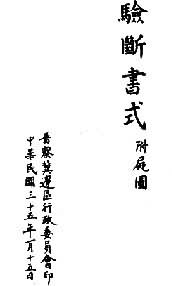 驗斷書式 附屍圖
晉察冀邊區行政委員會印
中華民國三十五年一月十五日